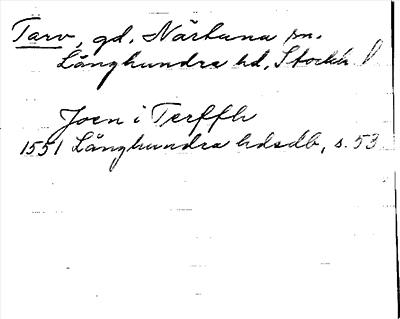 Tarv, gd. Närtuna sn.
Långhundra hd, Stockh. l
Joen i Terffh
1551 Långhundra hdsdb, s. 53